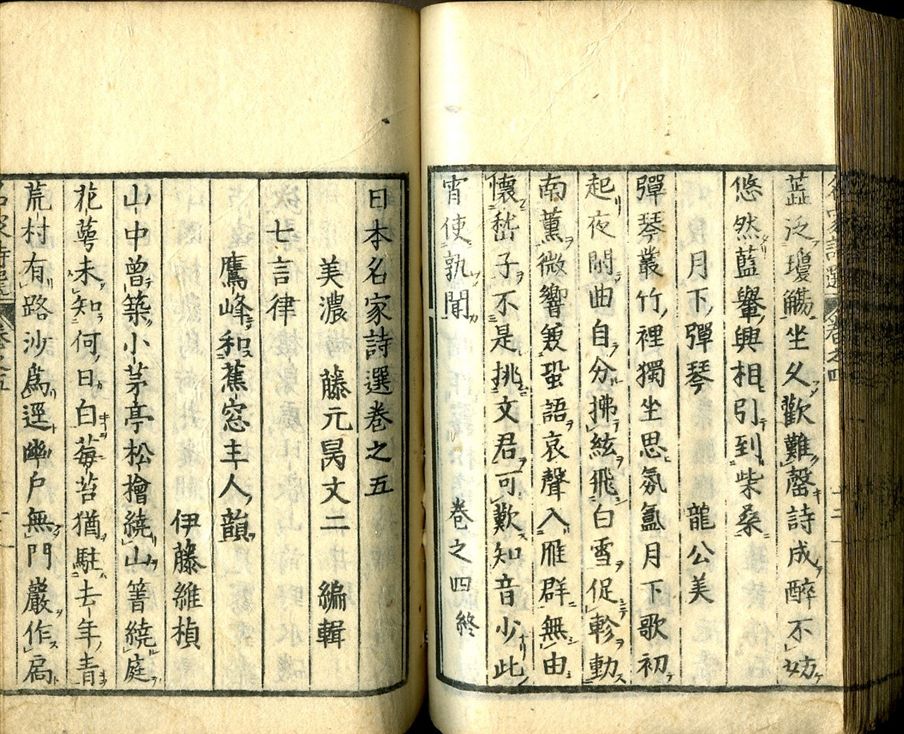 蕋泛瓊觴坐久歡難罄詩成醉不妨
悠然藍轝興相引到柴桑
月下彈琴 龍公美
彈琴叢竹裡獨坐思氛氳月下歌初
起夜閑曲自分拂絃飛白雪促軫動
南薰微響箋蛩語哀聲入雁群無由
懷嵇子不是挑文君可歎知音少此
宵使孰聞 卷之四終
日本名家詩選卷之五
美濃 藤元昺文二 編輯
七言律
鷹峰和蕉窓主人韻
伊藤維楨
山中曾築小茅亭松檜繞山箬繞庭
花萼未知何日白莓苔猶駐去年青
荒村有路沙為逕幽戶無門巖作扃